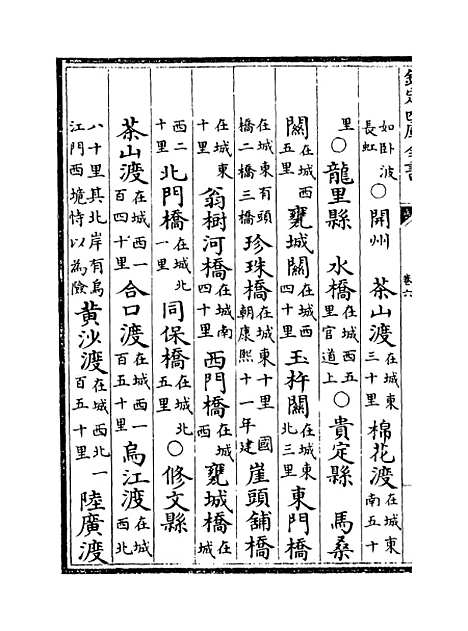 欽定四庫全書
卷六
如卧波長虹○開州 茶山渡在城東三十里棉花渡在城東南五十
里○龍里縣 水橋在城西五里官道上○貴定縣 馬桑
關在城西五里甕城關在城西四十里玉杵關在城東北三里東門橋
在城東有頭橋二橋三橋珍珠橋在城東十里國朝康熙十一年建崖頭鋪橋
在城東十里翁樹河橋在城南四十里西門橋在城西甕城橋在城
西二十里北門橋在城北一里同保橋在城北五里○修文縣
茶山渡在城西一百四十里合口渡在城西一百五十里烏江渡在城西北
八十里其北岸有烏江門西境恃以為險黄沙渡在城西北一百五十里陸廣渡